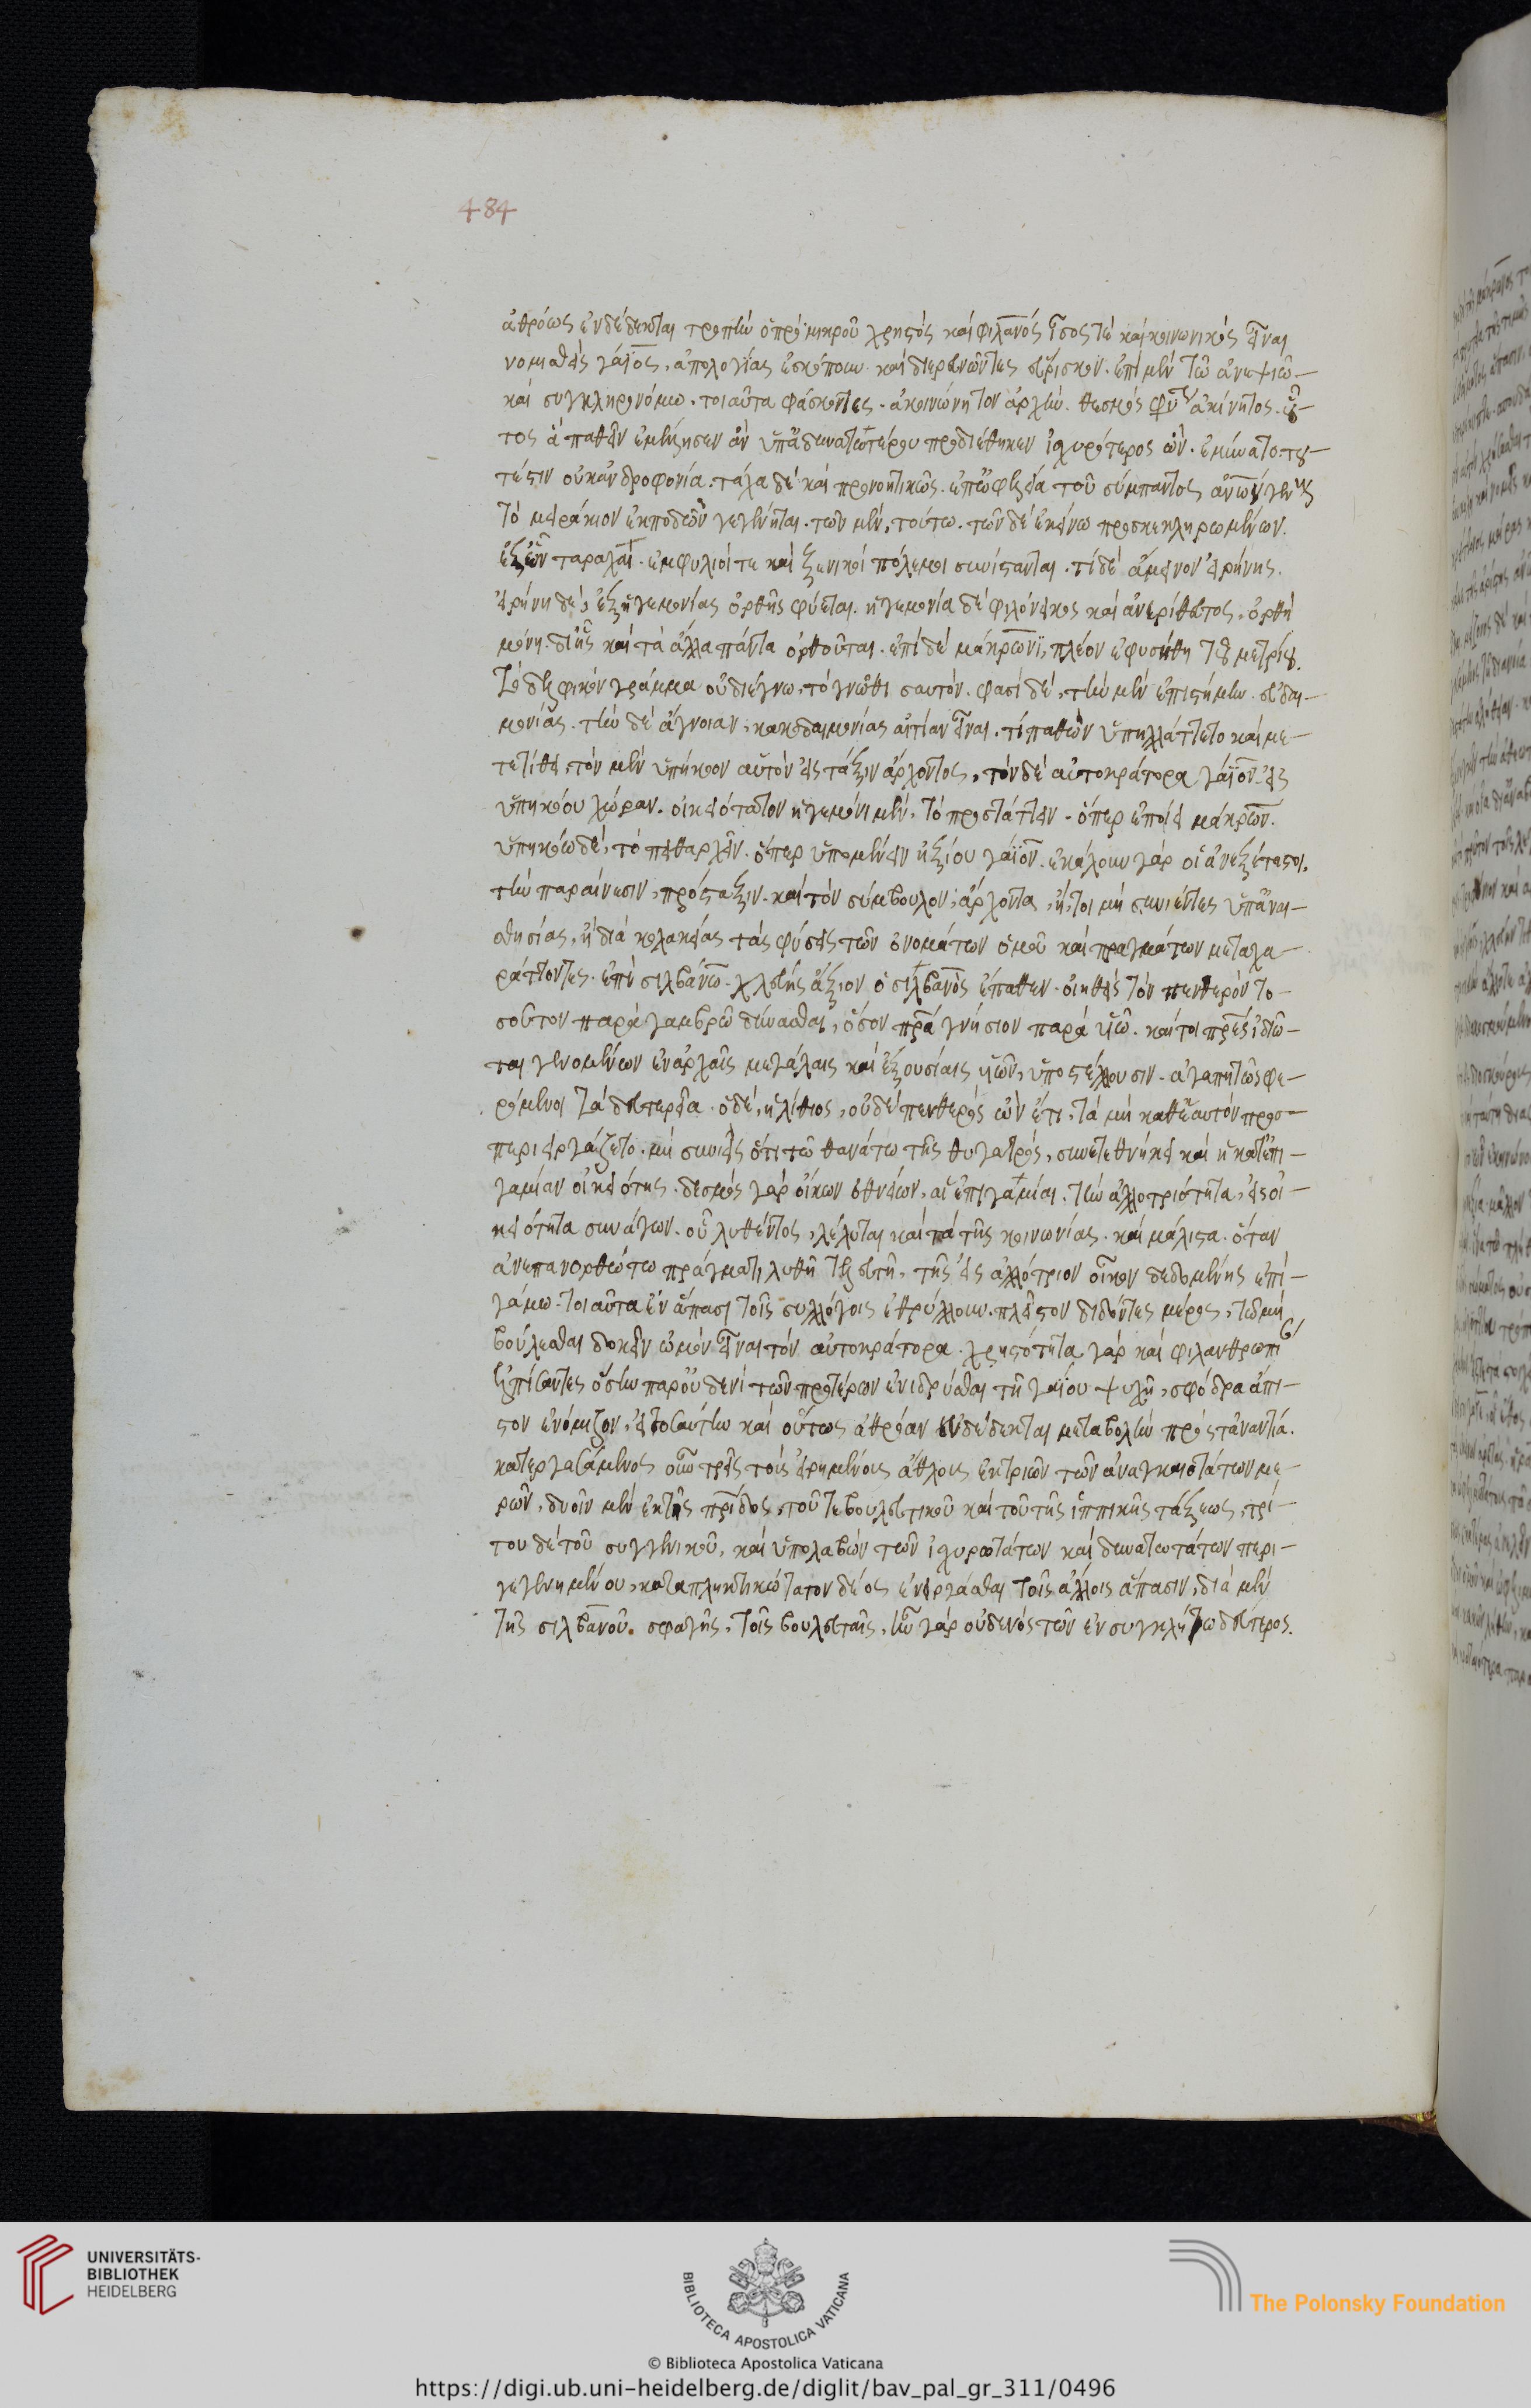 484
ἀθρόως ἐνδέδεκται τροπὴν ὁ πρὸ μικροῦ χρηστὸς καὶ φιλανός ἴσος τὲ καὶ κοινωνικὸς εἶναι
νομισθεὶς γάϊος, ἀπολογίας ἐσκόπουν· καὶ διερευνῶντες εὕρισκον· ἐπὶ μὲν τῶ ἀνεψιῶ
καὶ συγκληρονόμω· τοιαῦτα φάσκοντες· ἀκοινώνητον ἀρχὴν· θεσμὸς ἀκίνητος· οὗ-
τος ἃ παθεῖν ἐμέλλησεν ἂν ὑπ' ἀδυνατωτέρου προδιέθηκεν ἰσχυρότερος ὤν· του-
τέστιν οὐκ ἀνδροφονία· τάχα δὲ καὶ προνοητικῶς· ἐπ' ὠφελεία τοῦ σύμπαντος ἀνων γένους
τὸ μειράκιον ἐκποδὼν γεγένηται· τῶν μὲν, τούτω· τῶν δὲ ἐκείνω προσκεκληρωμένων.
ἐξ ὧν ταραχαὶ· ἐμφύλιοί τε καὶ ξενικοὶ πόλεμοι συνίστανται· τί δὲ ἄμεινον εἰρήνης.
εἰρήνη δὲ, ἐξ ἡγεμονίας ὀρθῆς φύεται· ἡγεμονία δὲ φιλόνεικος καὶ ἀνερίθευτος, ὀρθὴ
μόνη· δι' ἧς καὶ τὰ ἄλλα πάντα ὀρθοῦται· ἐπὶ δὲ μάκρωνι, πλέον ἐφυσήθη τοῦ μετρίου.
τὸ δελφικὸν γράμμα οὐ διέγνω, τὸ γνῶθι σαυτόν· φασὶ δὲ, τὴν μὲν ἐπιστήμην εὐδαι-
μονίας· τὴν δὲ ἄγνοιαν, κακοδαιμονίας αἰτίαν εἶναι· τί παθὼν ὑπηλλάττετο καὶ με-
τετίθει, τὸν μὲν ὑπήκοον αὑτὸν εἰς τάξιν ἄρχοντος, τὸν δὲ αὐτοκράτορα γάϊον εἰς
ὑπηκόου χώραν· οἰκειότατον ἡγεμόνι μὲν, τὸ προστάττειν· ὅπερ ἐποίει μάκρων.
ὑπηκόω δὲ, τὸ πειθαρχεῖν· ὅπερ ὑπομένειν ἠξίου γάϊον· ἐκάλουν γὰρ οἱ ἀνεξέταστοι.
τὴν παραίνεσιν, πρόσταξιν· καὶ τὸν σύμβουλον, ἄρχοντα, ἤτοι μὴ συνιέντες ὑπ' ἀναι-
σθησίας, ἢ διὰ κολακείας τὰς φύσεις τῶν ὀνομάτων ὁμοῦ καὶ πραγμάτων μεταχα-
ράττοντες· ἐπὶ σιλβανῶ· χλεύης ἄξιον ὁ σιλβανὸς ἔπαθεν· οἰηθεὶς τὸν πενθερὸν το-
σοῦτον παρὰ γαμβρῶ δύνασθαι, ὅσον πρα γνήσιον παρὰ υἱῶ· καίτοι πρες ἰδιῶ-
ται γενομένων ἐν ἀρχαῖς μεγάλαις καὶ ἐξουσίαις υἱῶν, ὑποστέλλουσιν· ἀγαπητῶς φε-
ρόμενοι τὰ δευτερεῖα· ὁ δὲ, ἠλίθιος, οὐδὲ πενθερὸς ὢν ἔτι, τὰ μὴ καθ' ἑαυτὸν προσ-
περιειργάζετο· μὴ συνιεὶς ὅτι τῶ θανάτω τῆς θυγατρὸς, συνετεθνήκει καὶ ἡ κατ' ἐπι-
γαμίαν οἰκειότης· δεσμὸς γὰρ οἴκων ὀθνείων, αἱ ἐπιγαμίαι· τὴν ἀλλοτριότητα, εἰς οἰ-
κειότητα συνάγων· οὗ λυθέντος, λέλυται καὶ τὰ τῆς κοινωνίας· καὶ μάλιστα· ὅταν
ἀνεπανορθώτω πράγματι λυθῆ τελευτῆ, τῆς εἰς ἀλλότριον οἶκον δεδομένης ἐπὶ
γάμω· τοιαῦτα ἐν ἅπασι τοῖς συλλόγοις ἐθρύλλουν· πλεῖστον διδόντες μέρος, τῶ μὴ
βούλεσθαι δοκεῖν ὠμὸν εἶναι τὸν αὐτοκράτορα· χρηστότητα γὰρ καὶ φιλανθρωπί
ἐλπίσαντες ὅσην παρ' οὐδενὶ τῶν προτέρων ἐνιδρύσθαι τῆ γαΐου ψυχῆ, σφόδρα ἄπι-
στον ἐνόμιζον, εἰ τοσαύτην καὶ οὕτως ἀθρόαν ἐνδέδεκται μεταβολὴν πρὸς τἀναντία.
κατεργασάμενος οὖν τρεῖς τοὺς εἰρημένους ἄθλους ἐκ τριῶν τῶν ἀναγκαιοτάτων με-
ρῶν, δυοῖν μὲν ἐκ τῆς πρίδος, τοῦ τε βουλευτικοῦ καὶ τοῦ τῆς ἱππικῆς τάξεως, τρί-
του δὲ τοῦ συγγενικοῦ, καὶ ὑπολαβὼν τῶν ἰσχυροτάτων καὶ δυνατωτάτων περι-
γεγενημένου, καταπληκτικώτατον δέος ἐνειργάσθαι τοῖς ἄλλοις ἅπασιν, διὰ μὲν
τῆς σιλβανοῦ σφαγῆς, τοῖς βουλευταῖς, ἦν γὰρ οὐδενὸς τῶν ἐν συγκλήτω δεύτερος.
UNIVERSITÄTS-
BIBLIOTHEK
HEIDELBERG
BIBLIOTECA APOSTOLICA VATICANA
The Polonsky Foundation
© Biblioteca Apostolica Vaticana
https://digi.ub.uni-heidelberg.de/diglit/bav_pal_gr_311/0496